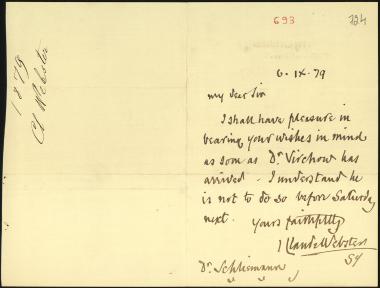 1879
Cl Webster
693
324
6. IX. 79
My dear Sir
I shall have pleasure in
bearing your wishes in mind
as soon as Dr Virchow has
arrived - I understand he
is not to do so before Saturday
next.
Yours faithfully
Claude Webster
Dr. Schliemann